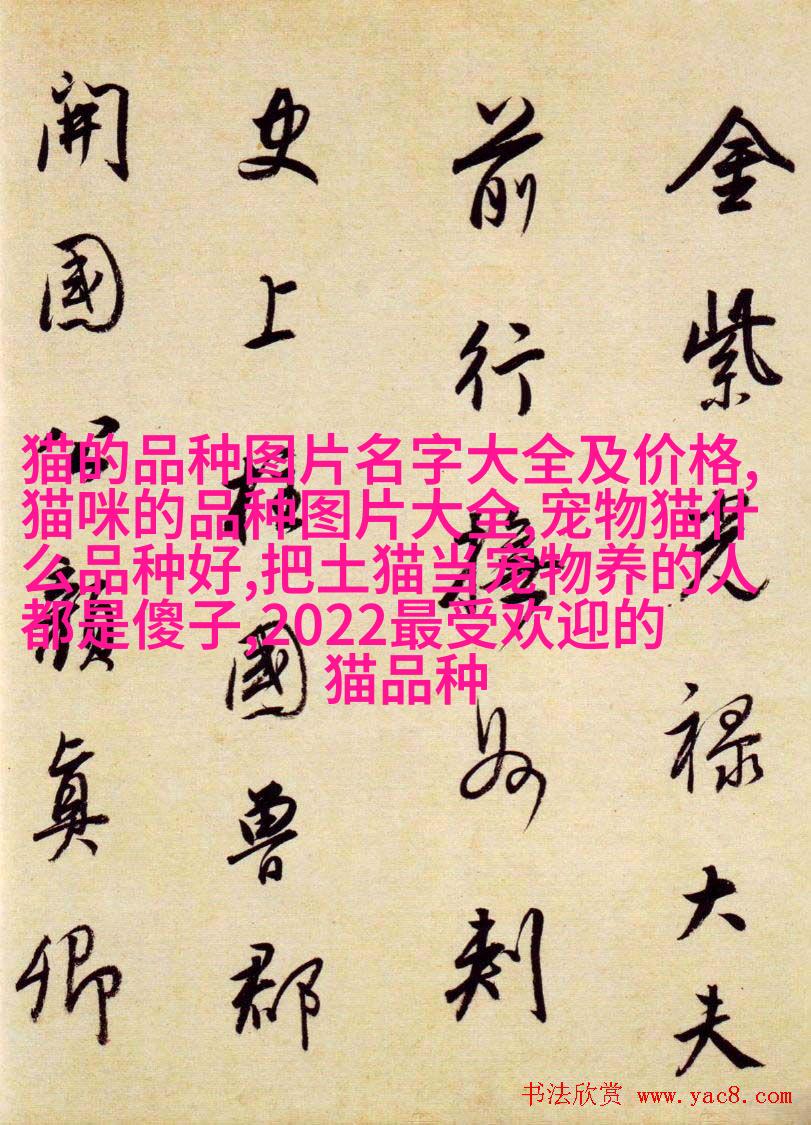 金紫光禄大夫
前行撫州刺
史上柱國魯郡
開國公顏真卿
猫的品种图片名字大全及价格,
猫咪的品种图片大全,宠物猫什
么品种好,把土猫当宠物养的人
都是傻子,2022最受欢迎的
猫品种
书法欣赏 www.yac8.com